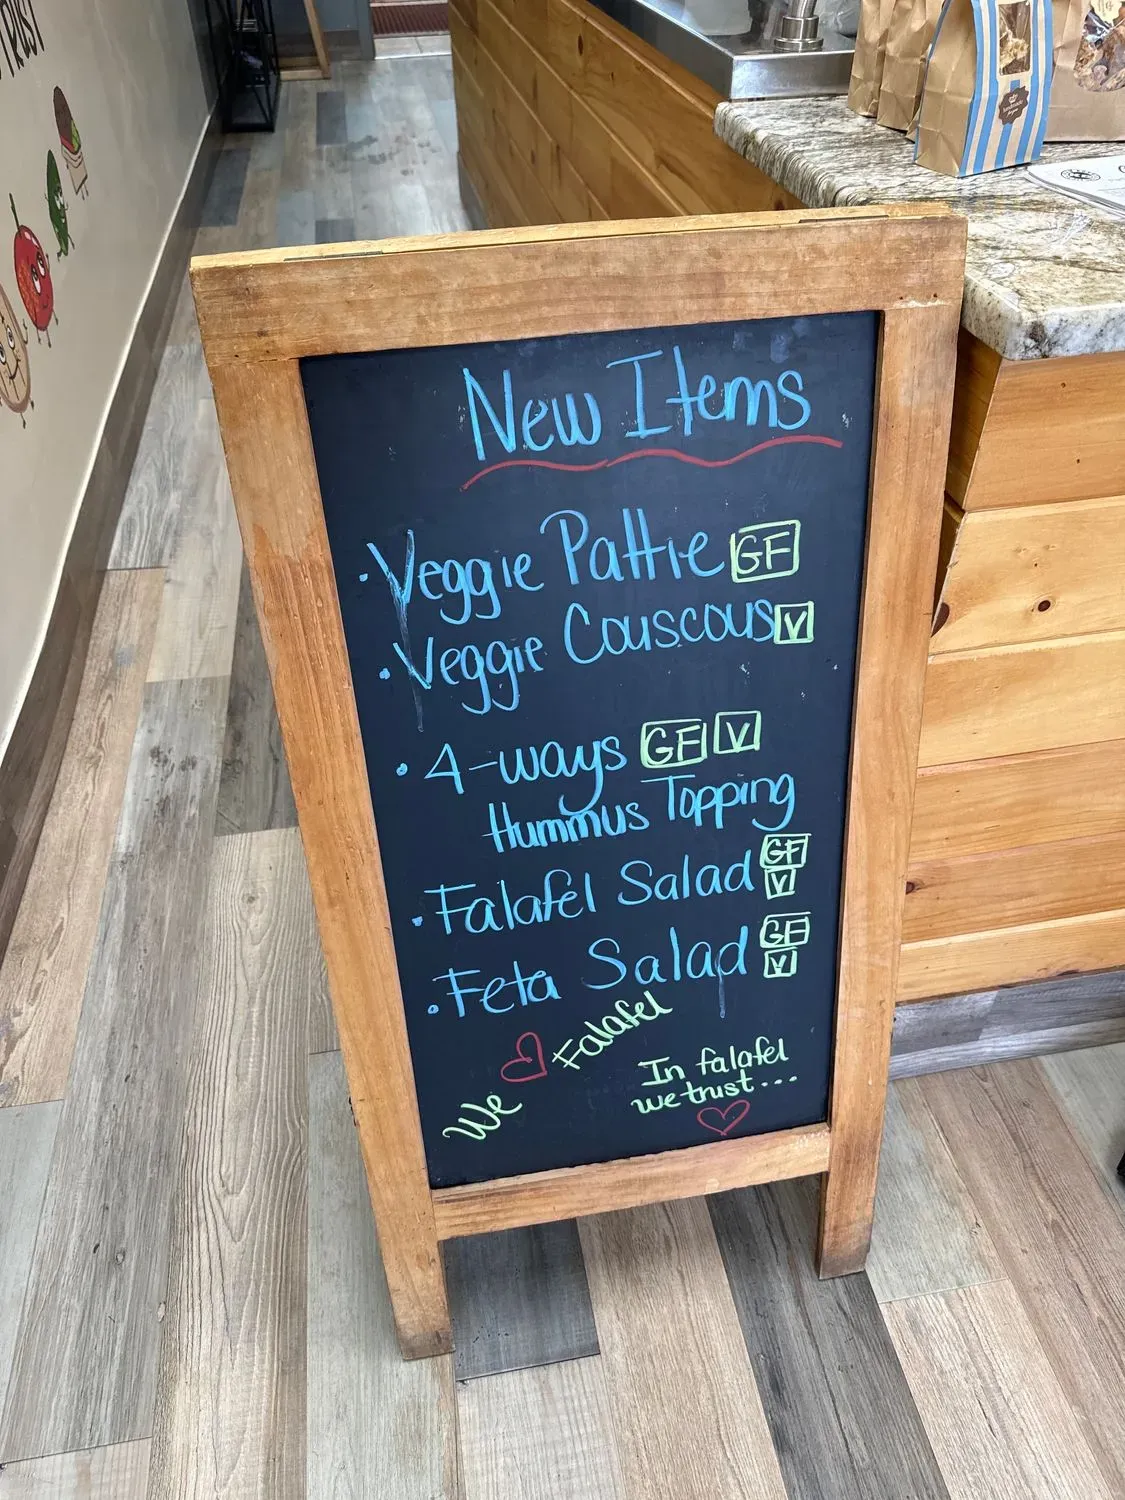 New Items
· Veggie Pattie GF
· Veggie Couscous V
· 4-ways GF V
Hummus Topping
· Falafel Salad GF V
· Feta Salad GF V
We ♡ Falafel
In falafel
we trust...
♡